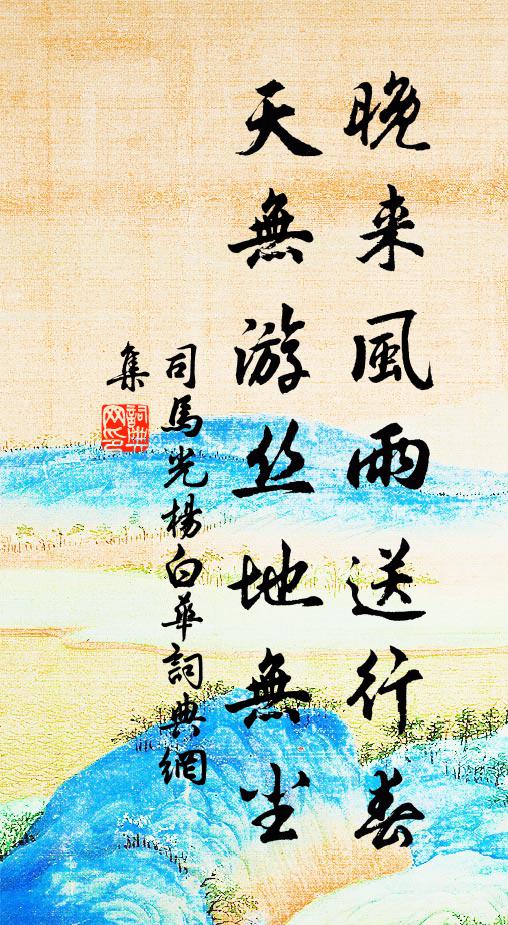 晚来風雨送行春
天無游丝地無尘
司馬光楊白華詞典網
集
詞典网印